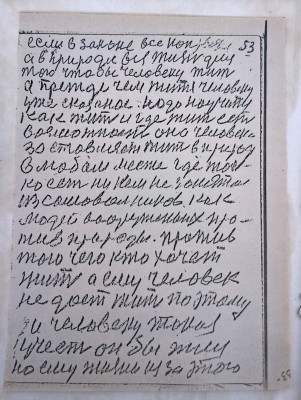 если в законе все 53
а в природе все для
того чтобы человеку жит
а прежде чем жить человеку
уже сказаное. надо научить
как жит и где жит ест
возможност оно человека
заставляет жит в природ
в любом месте где тол-
ко ест ни кем не
из самоволников. как
людей вооруженых про-
тив природы. против
того чего кто хочет
жить а ему человек
не дает жит поэтому
и человеку такая
он бы жил
но ему жизни из за этого